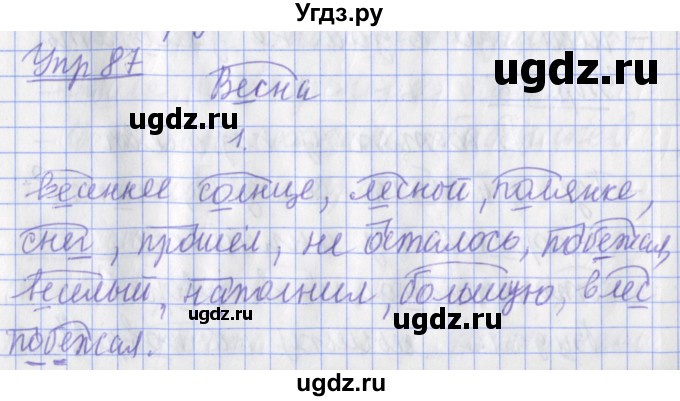 Угдз.ру
Упр 87
ugdz.ru
Весна
ugdz.ru
1.
весеннее солнце, лесной, полянке,
снег, прошёл, не осталось, побежал,
веселый, наполнил, большую, в лес
ugdz.ru
ugdz.ru
побежал.
ugdz.ru